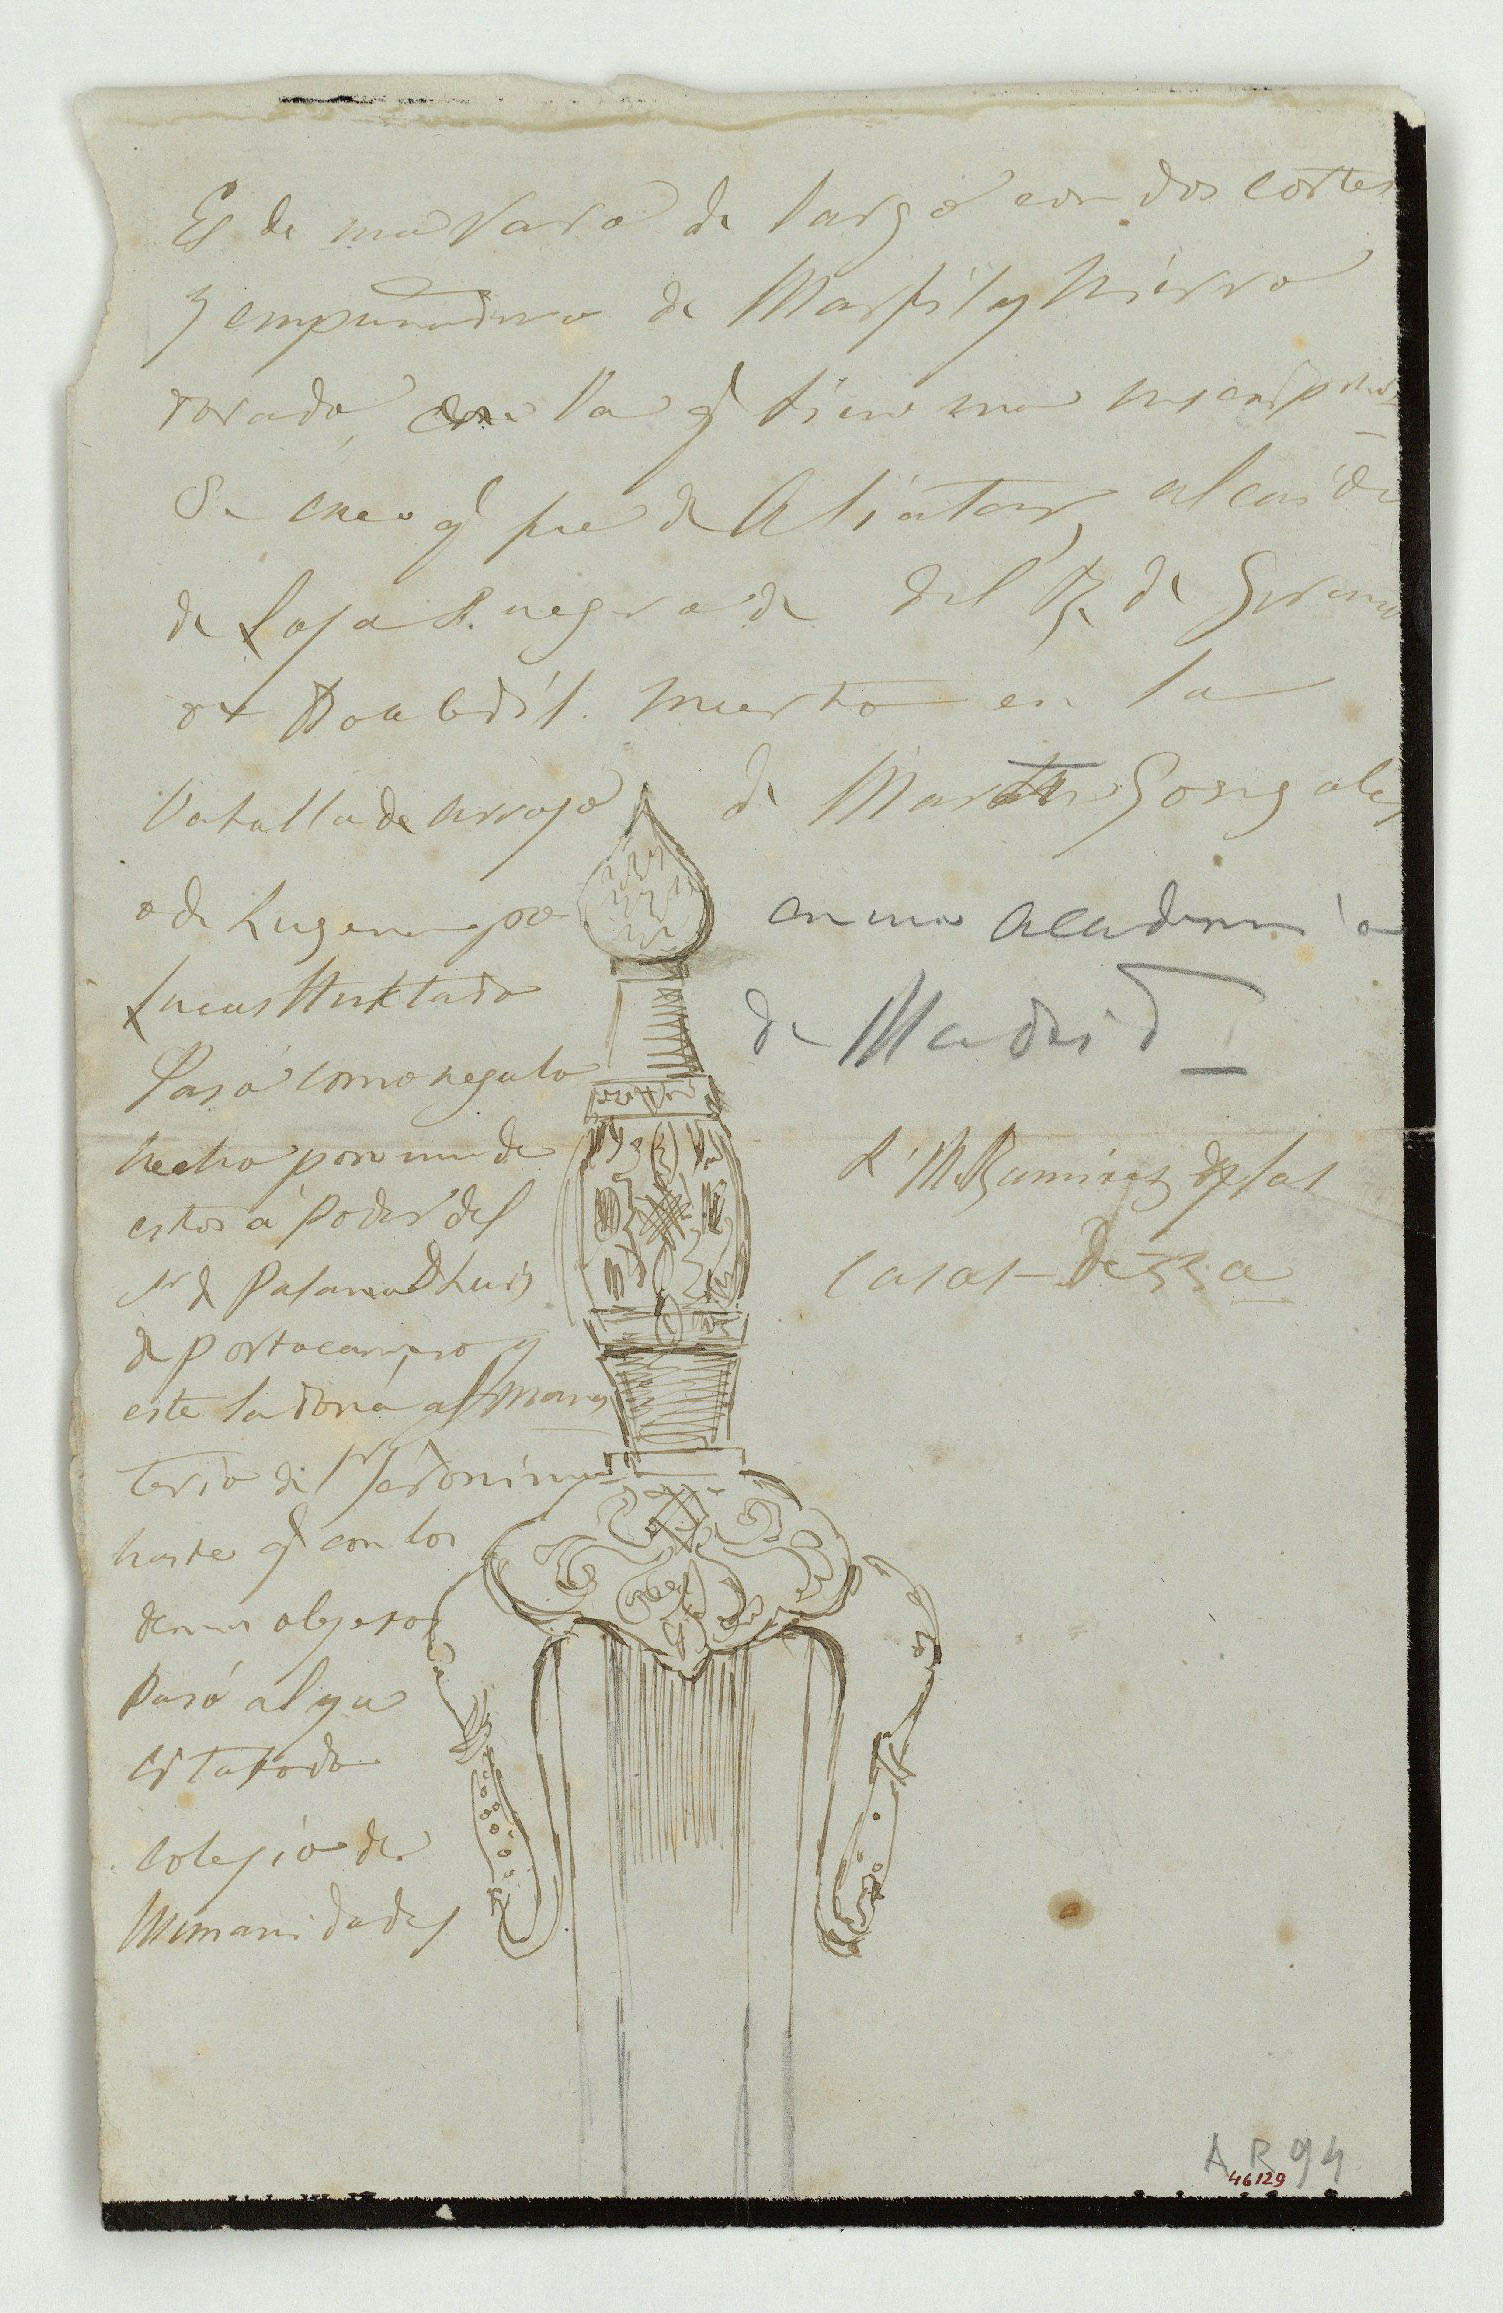 Es de una Vara de largo con dos cortes
y empuñadura de Marfil y hierro
dorado, en la q.e tiene una inscripcion
Se cree q.e fue de Aliatar, alcaide
de Loja Suegro de del R. de Grana
da Boabdil. muerto en la
batalla de arroyo de Martin Gonzalez
o de Lucena po
Lucas Hurtado
Pasó como regalo
hecho por uno de
estos á poder del
Sr de Palma D Luis
de Portocarrero y
este la donó al Monas
terio de Sn Jeronimo
hasta q.e con los
demas objetos
pasó al ya
citatodo
Colegio de
Humanidades
en una academia
de Madrid
R. M. Ramirez de las
Casas-Deza
A R 94
46129